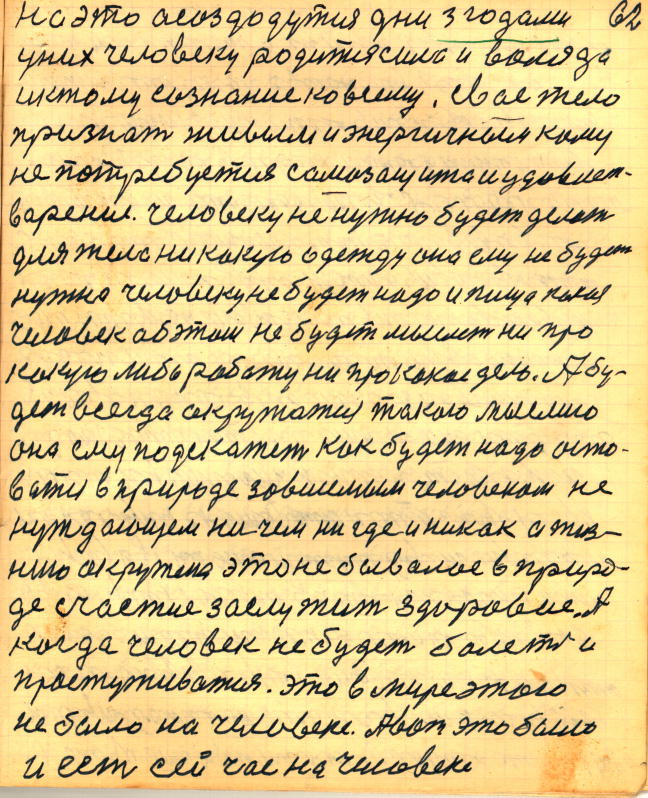 на это асоздодутся дни 3 годами 62
уних человеку родится сила и воля да
иктому сознание ковсему. Свае тело
признат живым и энергичным кому
не потребуется самозащита и удовлет-
варение. человеку не нужно будет делат
для тела ни какую одежду она ему не будет
нужна человеку не будет надо и пища
человек аб этом не будет мыслет ни про
какую либо работу ни про какое дело. А бу-
дет всегда окружатся такою мыслию
она ему подскажет как будет надо оста-
ватся в природе зависемым человеком не
нуждающем ни чем ни где и никак а жиз-
нию окружена это не бывалое в приро-
де счастие заслужит здоровие. А
когда человек не будет болет и
простуживатся. это в мире этого
не было на человеке. Авот это было
и ест сей час на человеке